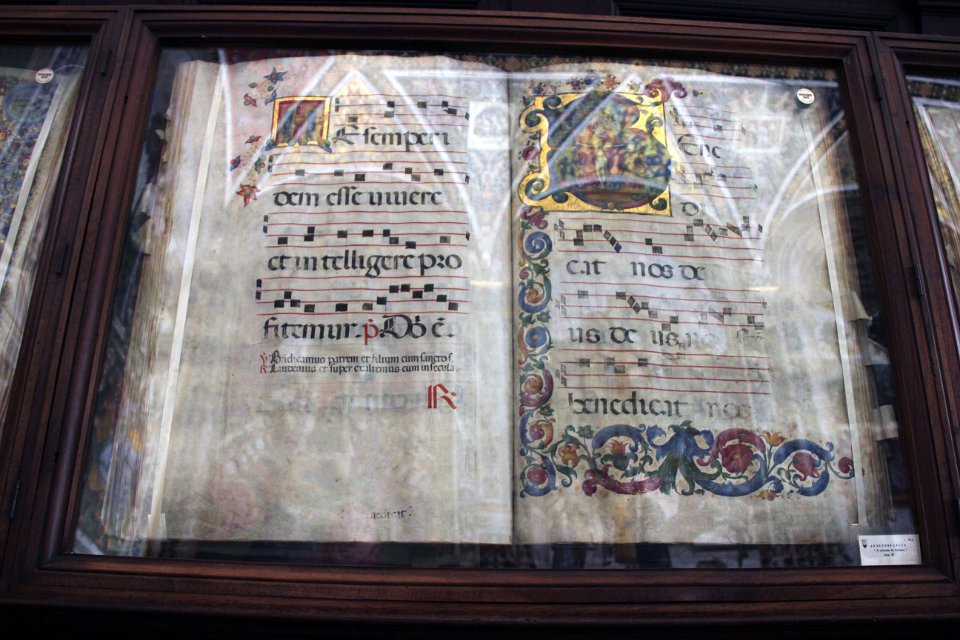 E semperi
dem esse vivere
et in telligere pro
fitemur. ꝟ Do᷑ c̄.
℣ Benedicamus patrem et filium cum sancto s.
℟ Laudemus et super exaltemus cum in secula
℟
benedicat
ene
di
cat nos de
us de us no
benedicat nos